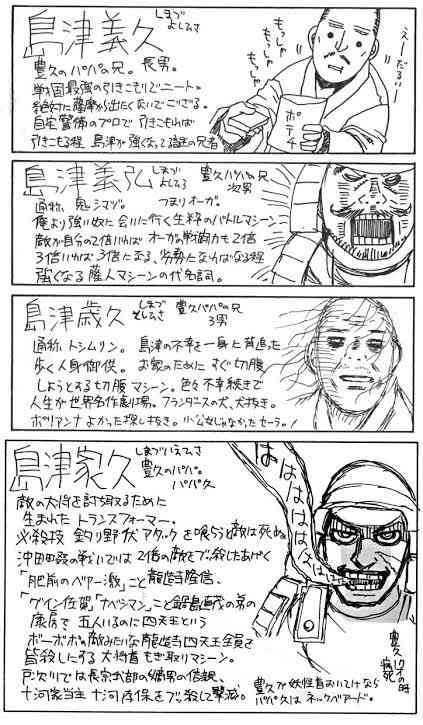 島津義久
しまづ
よしひさ
豊久のパパの兄。長男。
戦国最強の引きこもりでニート。
絶対に薩摩から出たくないでござる。
自宅警備のプロで引きこもれば
引きこもる程 島津が強くなって
もっしゃ
もっしゃ
もっしゃ
えーだるい
ポテチ
島津義弘
しまづ
よしひろ
豊久パパの兄
次男
通称、鬼シマヅ。つまりオーガ。
俺より強い奴に会いに行く生粋のバトルマシーン
敵が自分の2倍いれば オーガの戦闘力も2倍
3倍いれば 3倍になる、劣勢になればなる程
強くなる 薩人マシーンの代名詞。
島津歳久
しまづ
としひさ
豊久パパの兄
3男
通称、トシムリン。島津の不幸を一身に背負った
歩く人身御供。お家のために すぐ切腹
しようとする切腹マシーン。色々不幸続きで
人生が世界名作劇場。フランダースの犬、犬抜き。
ポリアンナ よかった探し抜き。小公女じゃなかったセーラ。
島津家久
しまづいえひさ
豊久のパパ。
パパ久
敵の大将を討ち取るために
生まれた トランスフォーマー。
必殺技 釣り野伏アタックを喰らうと敵は死ぬ
沖田畷の戦いでは 2倍の敵をブッ殺したあげく
「肥前のベアー激」こと龍造寺隆信、
「グイン佐賀」「ナベシマン」こと鍋島直茂の弟の
康房で 五人いるのに四天王という
ボーボボの敵みたいな龍造寺四天王全員を
皆殺しにする 大将首もぎ取りマシーン。
戸次川では長宗我部の嫡男の信親、
十河家当主 十河存保をブッ殺して撃滅。
はははははははは
豊久
病死
豊久が妖怪首おいてけなら
パパ久は ネックベアード。